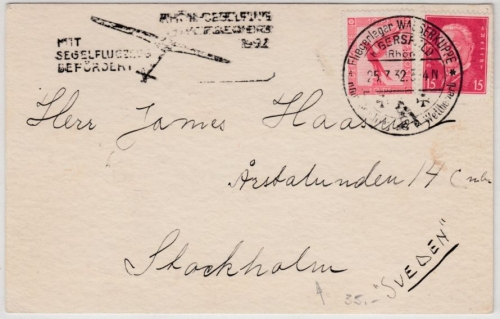 MIT
SEGELFLUGZEUG
BEFÖRDERT
RHÖN-SEGELFLUG
1932
Fliegerlager WASSERKUPPE
GERSFELD
(RHÖN)
25.7.32.3-4N
Wettbewerb
15
15
Herr James Haas
Årstalunden 14
Stockholm
35.-
"SVEDEN"